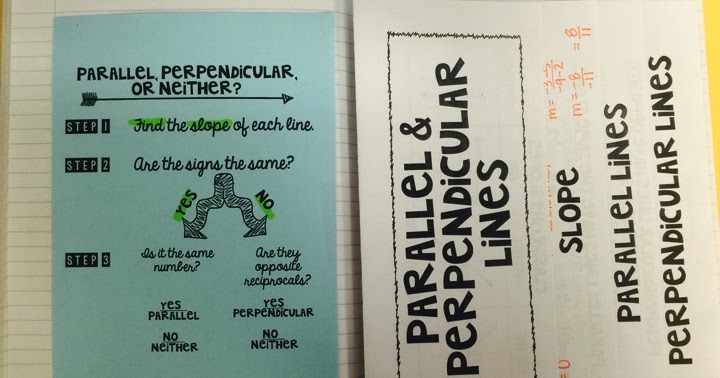 PARALLEL, PERPENDICULAR,
OR NEITHER?
STEP 1 Find the slope of each line.
STEP 2 Are the signs the same?
YES NO
STEP 3
Is it the same
number?
Are they
opposite
reciprocals?
YES
PARALLEL
YES
PERPENDICULAR
NO
NEITHER
NO
NEITHER
PARALLEL &
PERPENDICULAR
LINES
SLOPE
PARALLEL LINES
PERPENDICULAR LINES